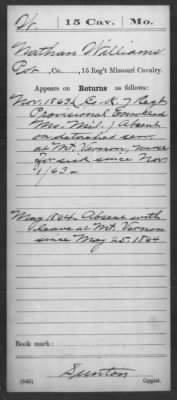 W. 15 Cav. Mo.
Nathan Williams
Pvt., Co. , 15 Reg't Missouri Cavalry.
Appears on Returns as follows:
Nov. 1863. (Co. K. 7 Regt
Provisional Enrolled
Mo. Mil.) Absent
on detached serv.
at Mt. Vernon, nurse
for sick since Nov
1/63.
May 1864. Absent with
leave at Mt. Vernon
since May 25. 1864
Book mark:
(546) Dunton
Copyist.